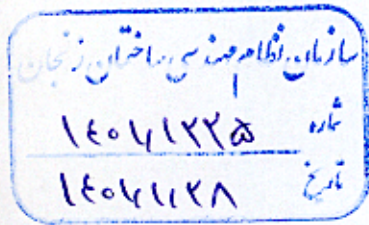 سازمان نظام مهندسی ساختمان زنجان
شماره ۱۴۰۲/۱۲۳۵
تاریخ ۱۴۰۲/۱/۲۸